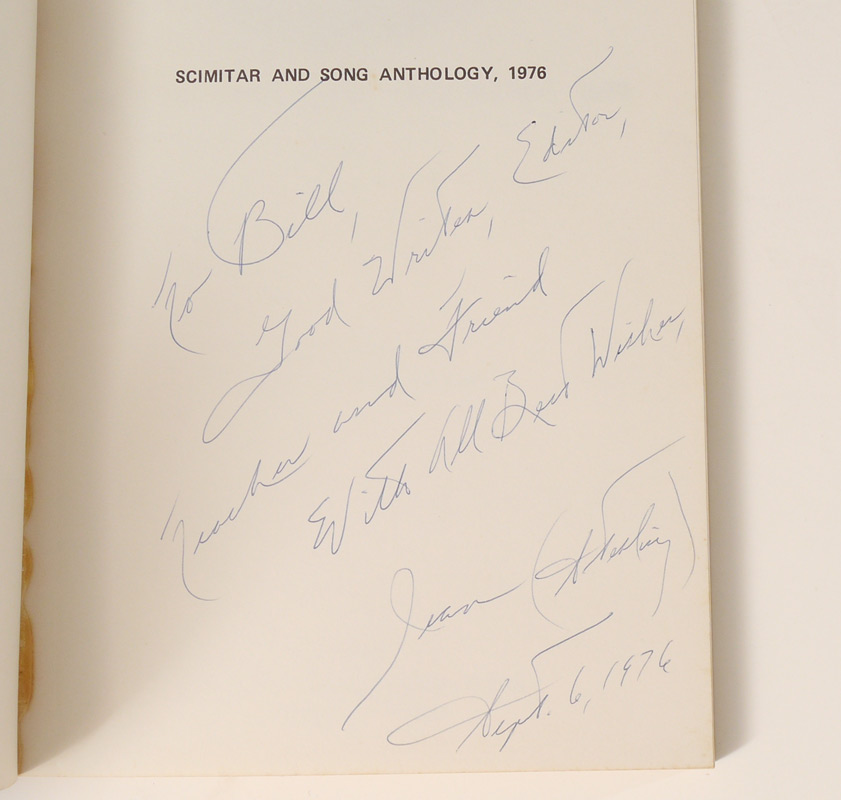 SCIMITAR AND SONG ANTHOLOGY, 1976
To Bill,
Good Writer, Editor,
Teacher and Friend
With All Best Wishes,
Jean (Sterling)
Sept. 6, 1976